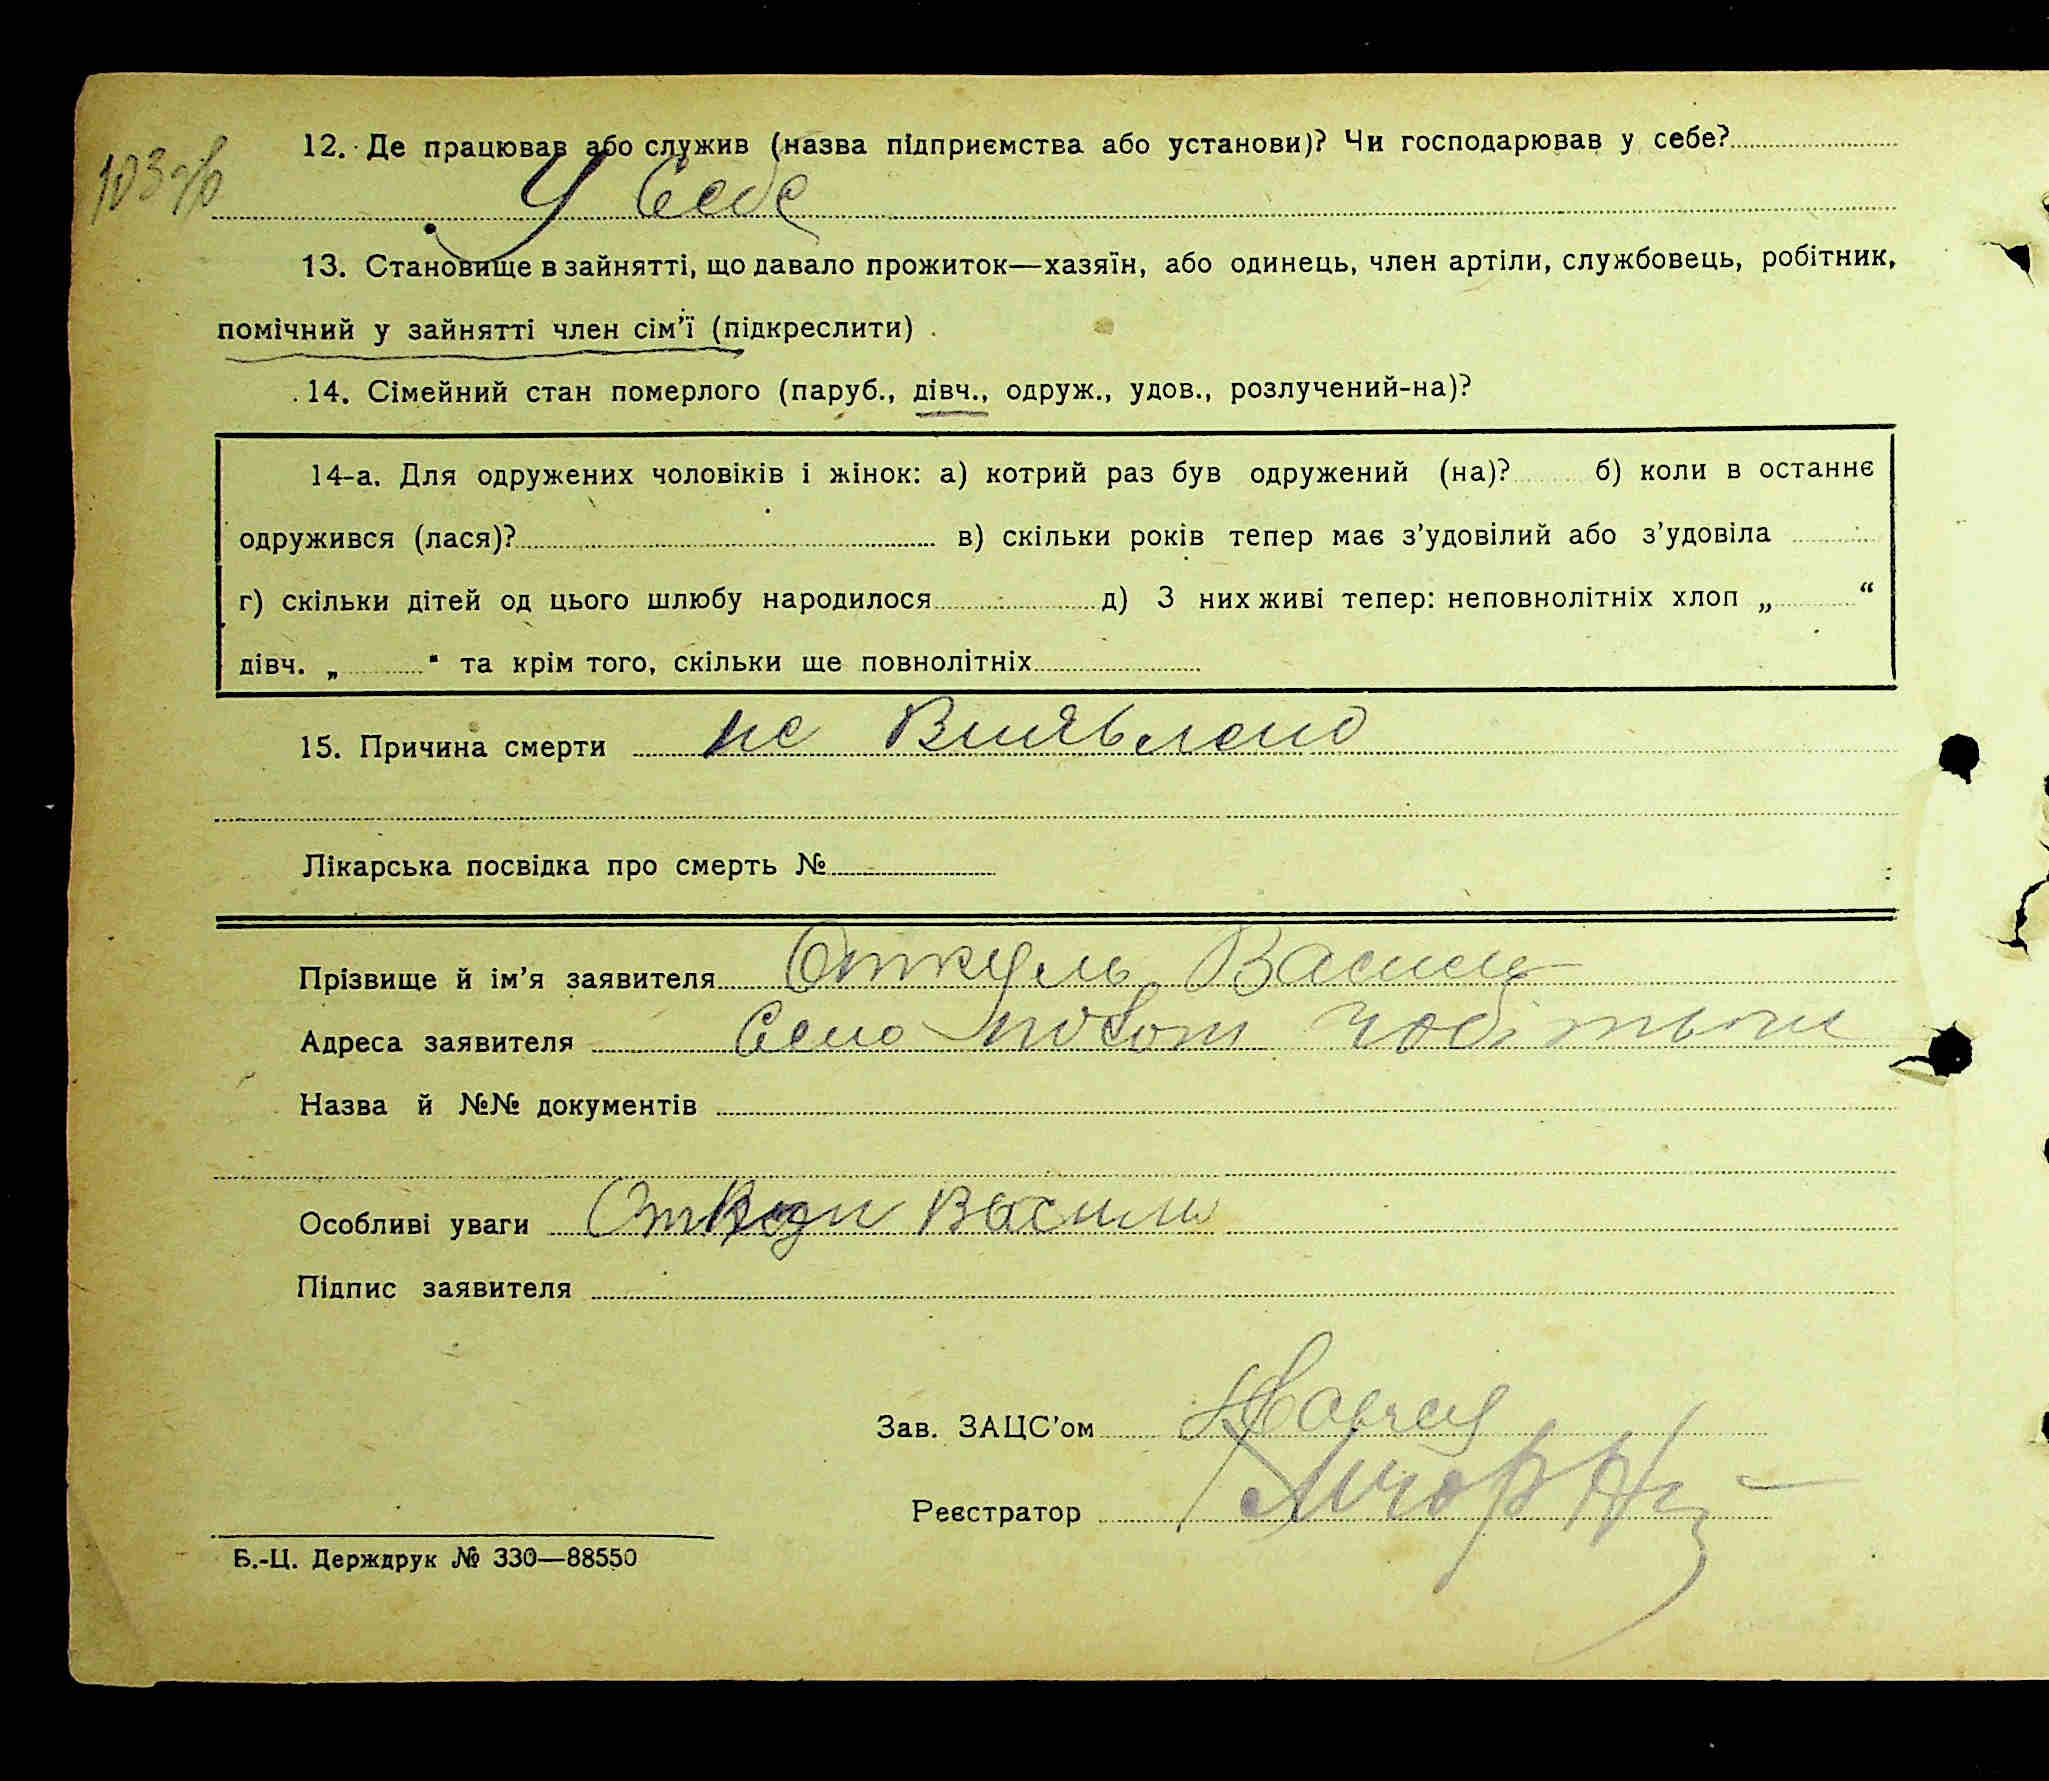 103 зв
12. Де працював або служив (назва підприємства або установи)? Чи господарював у себе?
У Себе
13. Становище в зайнятті, що давало прожиток—хазяїн, або одинець, член артіли, службовець, робітник,
помічний у зайнятті член сім'ї (підкреслити)
14. Сімейний стан померлого (паруб., дівч., одруж., удов., розлучений-на)?
14-а. Для одружених чоловіків і жінок: а) котрий раз був одружений (на)? б) коли в останнє
одружився (лася)? в) скільки років тепер має з'удовілий або з'удовіла
г) скільки дітей од цього шлюбу народилося д) З них живі тепер: неповнолітніх хлоп „ “
дівч. „ “ та крім того, скільки ще повнолітніх
15. Причина смерти не Виявлено
Лікарська посвідка про смерть №
Прізвище й ім'я заявителя Откуль Василь
Адреса заявителя Село
Назва й №№ документів
Особливі уваги Василь
Підпис заявителя
Зав. ЗАЦС'ом
Реєстратор
Б.-Ц. Держдрук № 330—88550